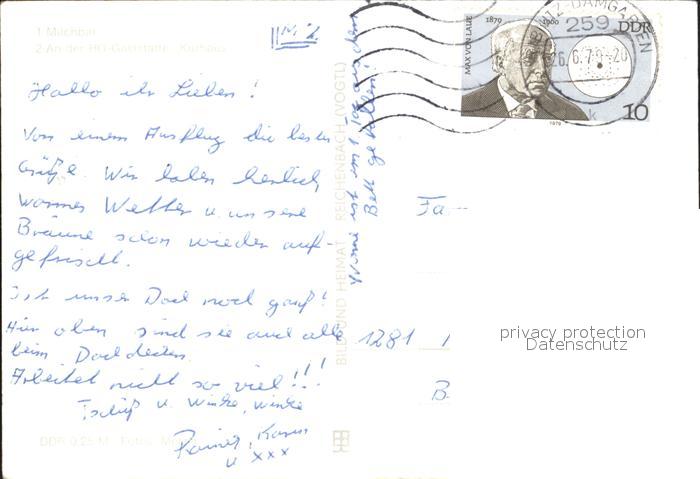 1 Milchbar
2 An der HO-Gaststätte "Kurhaus"
Nr. 2
Hallo ihr Lieben!
Von einem Ausflug die besten
Grüße. Wir haben herrlich
warmes Wetter u. unsere
Bräune schon wieder auf-
gefrischt.
Ist unser Dach noch ganz?
Hier oben sind sie auch alle
beim Dachdecken.
Arbeitet nicht so viel!!!
Tschüß u. Winke, winke
Rainer, Karin
u xxx
DDR 0,25 M
BILD UND HEIMAT REICHENBACH (VOGTL)
Yvonne ist mit 1 Tag aus dem
Bett gefallen!
MAX VON LAUE
1879 1960
DDR
10
1979
TZ-DAMGARTEN
259
26.6.79-20
Fa
1281
B
privacy protection
Datenschutz